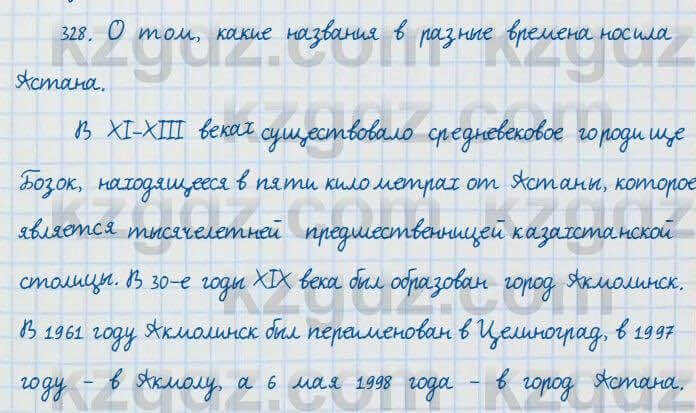 328. О том, какие названия в разные времена носила
Астана.
В XI-XIII веках существовало средневековое городище
Бозок, находящееся в пяти километрах от Астаны, которое
является тысячелетней предшественницей казахстанской
столицы. В 30-е годы XIX века был образован город Акмолинск.
В 1961 году Акмолинск был переименован в Целиноград, в 1997
году - в Акмолу, а 6 мая 1998 года - в город Астана.